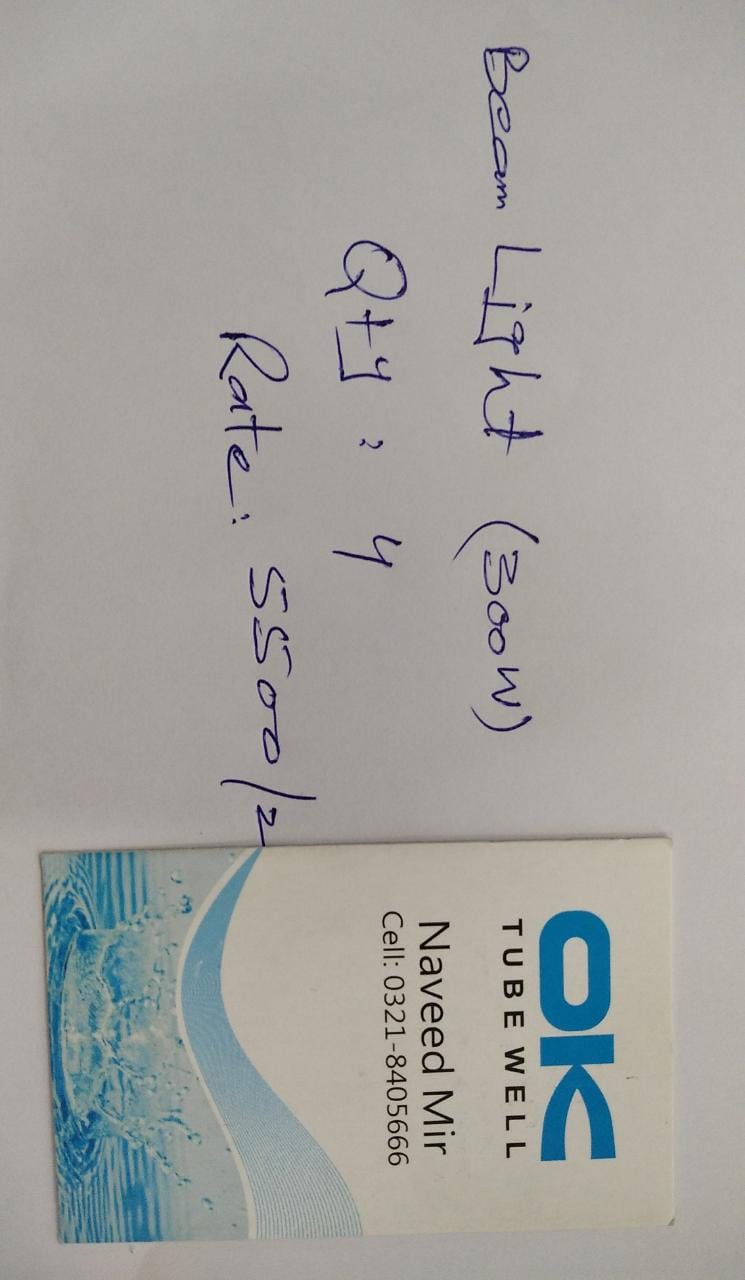 Beam Light (300W)
Qty: 4
Rate: 5500/=
OK
TUBE WELL
Naveed Mir
Cell: 0321-8405666